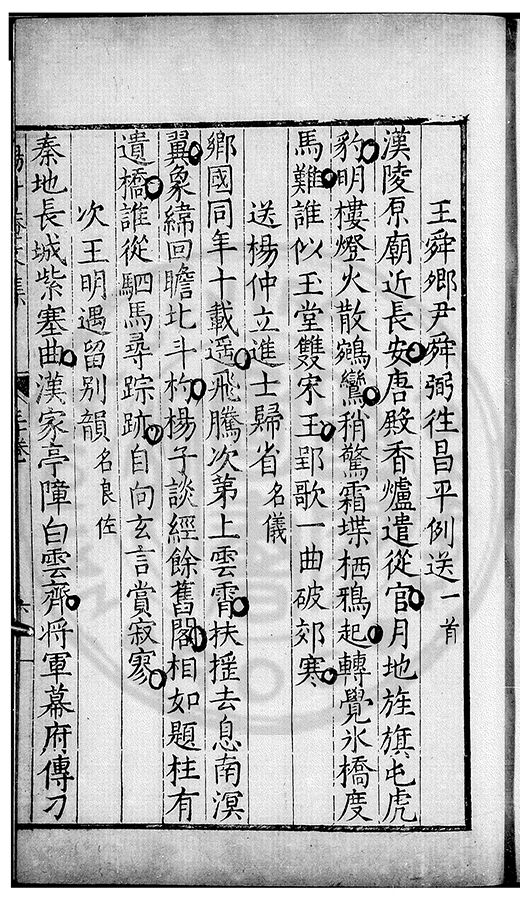 王舜卿尹舜弼徃昌平例送一首
漢陵原廟近長安唐殿香爐遣從官月地旌旗屯虎
豹明樓燈火散鵷鸞稍驚霜堞栖鴉起轉覺氷橋度
馬難誰似玉堂雙宋玉郢歌一曲破郊寒
送楊仲立進士歸省名儀
鄉國同年十載遥飛騰次第上雲霄扶摇去息南溟
翼象緯回瞻北斗杓楊子談經餘舊閣相如題柱有
遺橋誰從駟馬尋踪跡自向玄言賞寂寥
次王明遇留別韻名良佐
秦地長城紫塞曲漢家亭障白雲齊将軍幕府傳刁